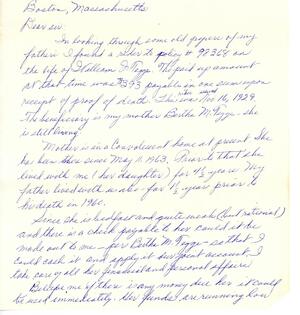 Boston, Massachusetts
Dear sir:
In looking through some old papers of my
father's I found a rider to policy # 97308 on
the life of William J. Fogg. The paid up amount
at that time was $393 payable in one sum upon
receipt of proof of death. This was Nov 16, 1929
The beneficiary is my mother Bertha M. Fogg - she
is still living.
Mother is in a Convalescent home at present. She
has been there since May 11, 1963. Prior to that she
lived with me (her daughter) for 4 1/2 years. My
father lived with us also - for 1 1/2 years prior to
his death in 1960.
Since she is bedfast and quite weak (but rational)
and there is a check payable to her could it be
made out to me - for Bertha M. Fogg - so that I
could cash it and apply it to our joint account. I
take care of all her financial and personal affairs
Please me if there is any money due her it could
be used immediately. Her funds are running low